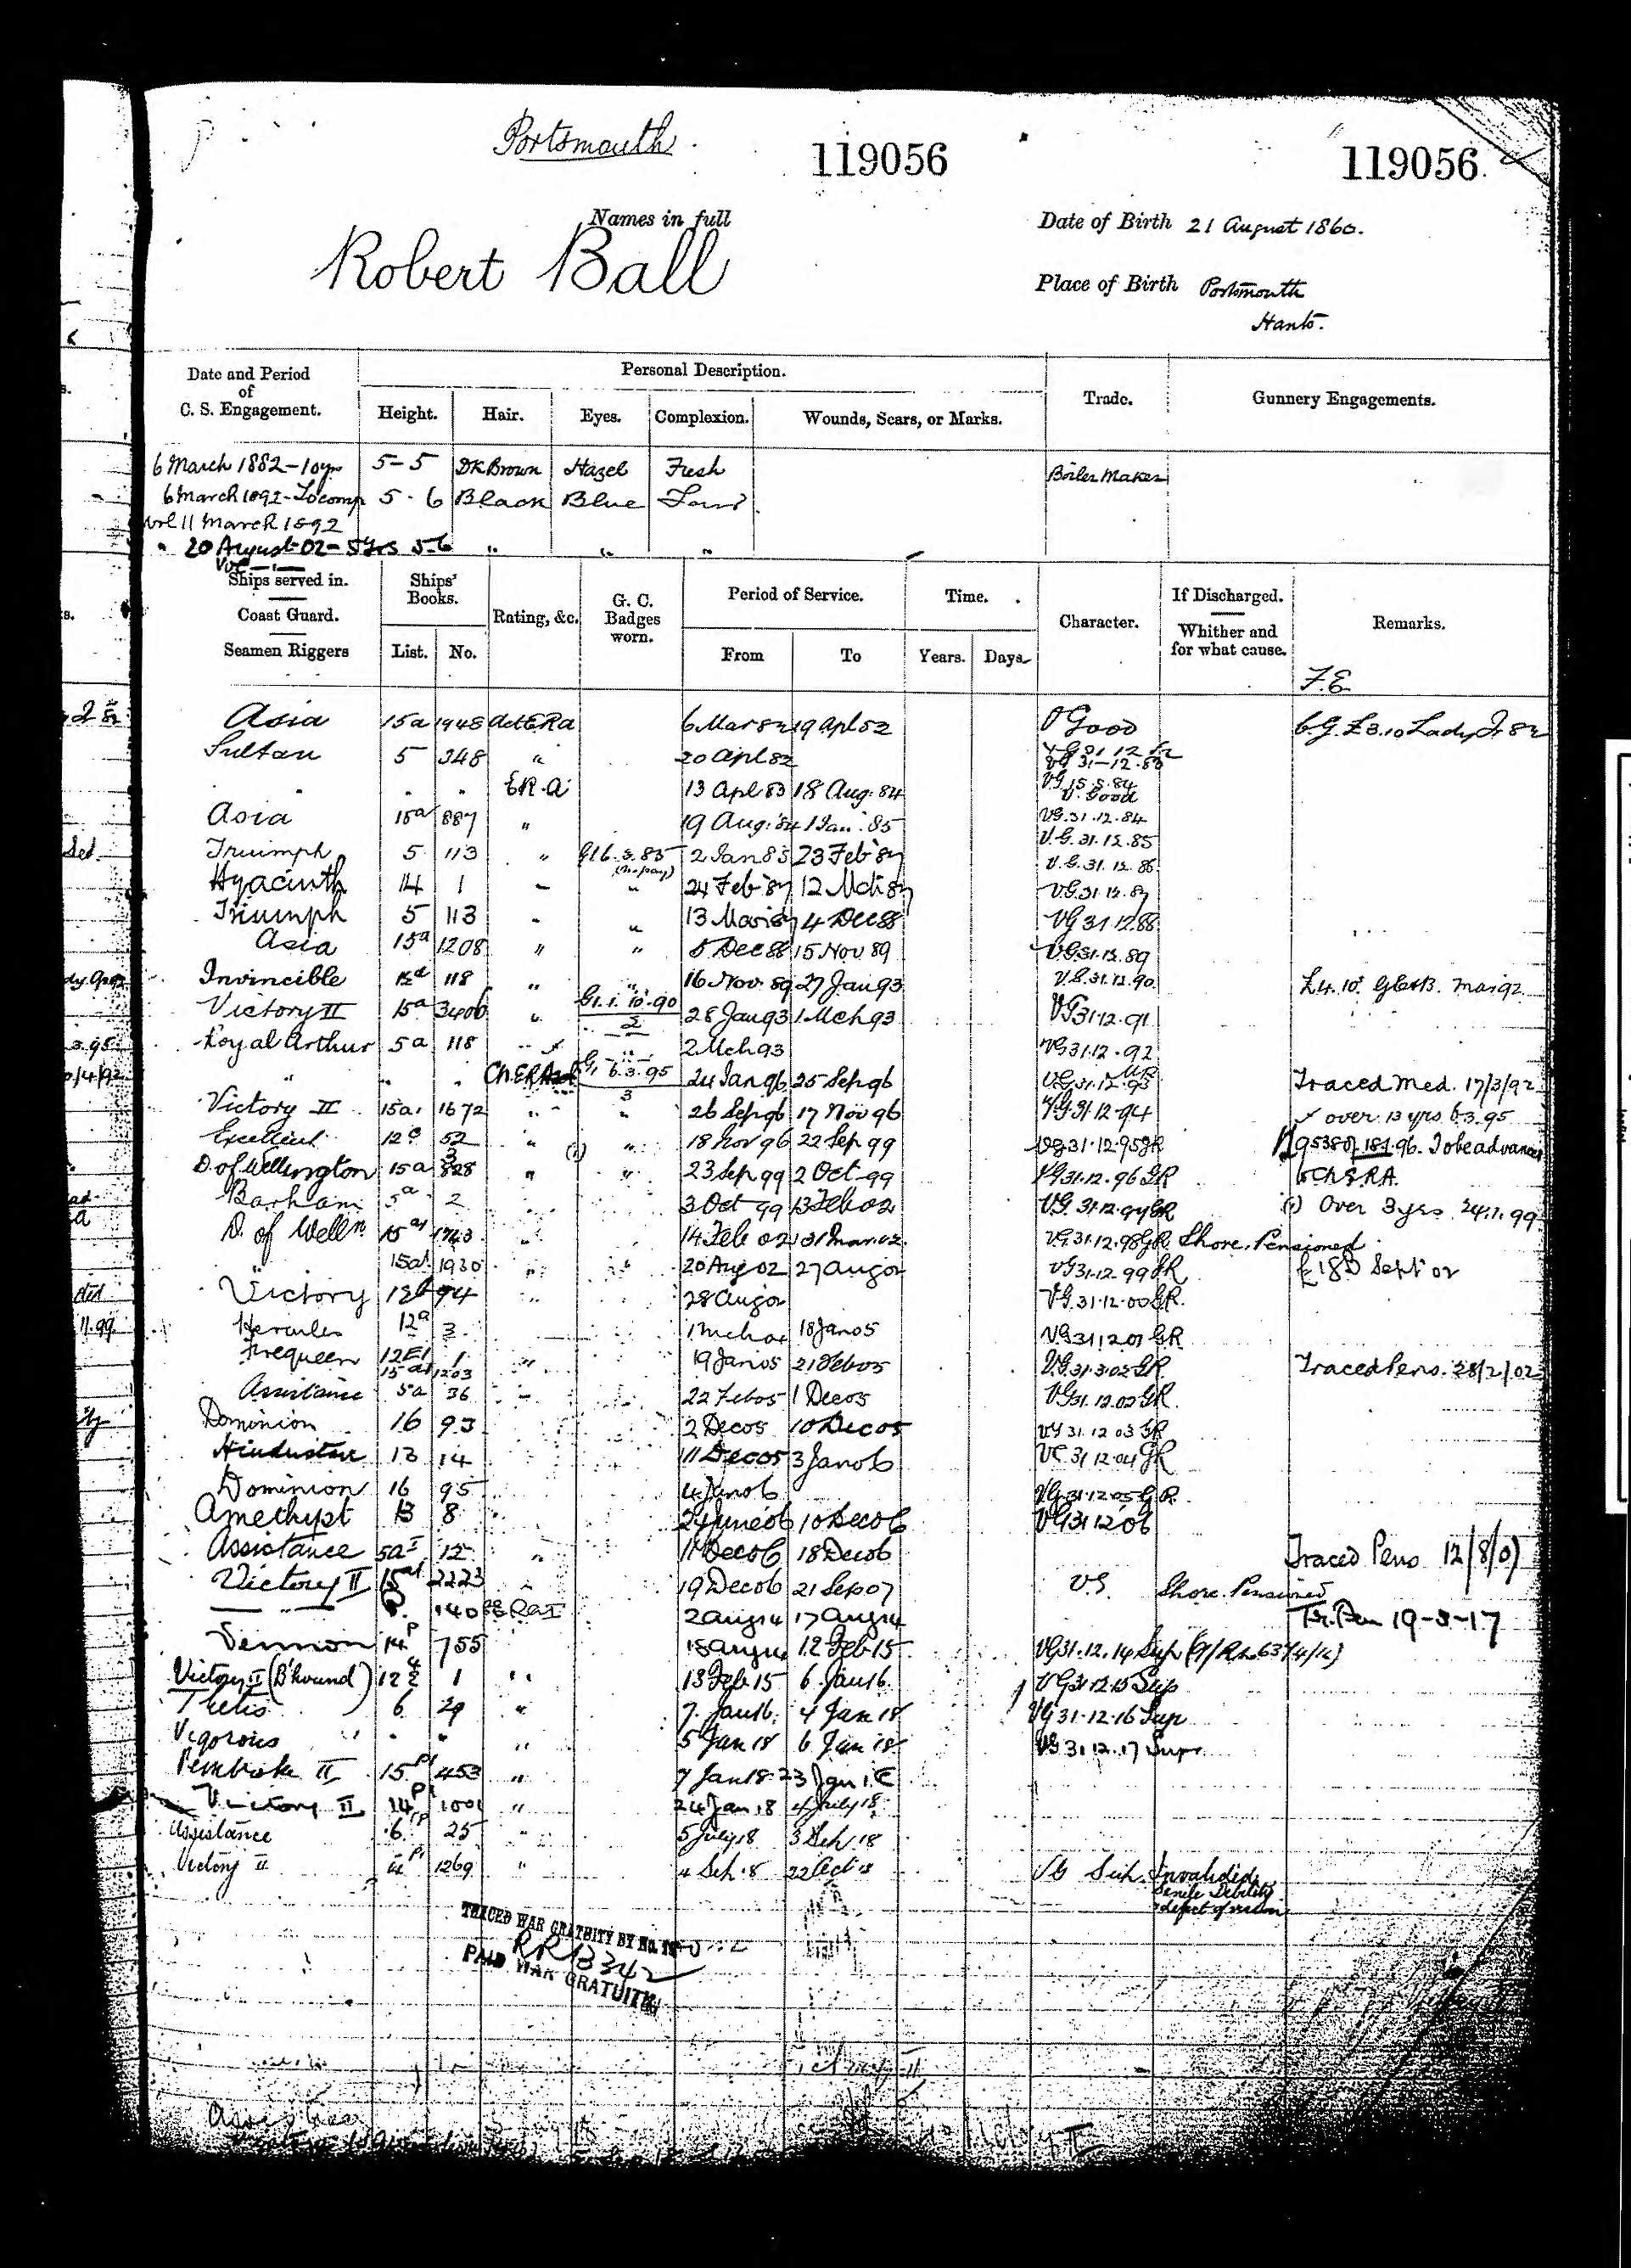 Portsmouth
119056
119056
Names in full
Robert Ball
Date of Birth 21 August 1860.
Place of Birth Portsmouth
Hants.
Date and Period of C. S. Engagement.
Personal Description.
Height. Hair. Eyes. Complexion. Wounds, Scars, or Marks.
Trade.
Gunnery Engagements.
6 March 1882 - 10 yrs 5-5 DK Brown Hazel Fresh Boiler Maker
6 March 1892 - To comp 5-6 Black Blue
vol 11 March 1892
" 20 August 02 - 5 yrs 5-6 " " "
Ships served in.
Coast Guard.
Seamen Riggers
Ships' Books.
List. No.
Rating, &c.
G. C. Badges worn.
Period of Service.
From To
Time.
Years. Days.
Character.
If Discharged.
Whither and for what cause.
Remarks.
F.E.
Asia 15a 1948 Act ERA 6 Mar 82 19 Apl 82 V Good
Sultan 5 348 " 20 Apl 82 VG 31-12-83
" " E.R.A 13 Apl 83 18 Aug. 84 V. Good
Asia 15a 887 " 19 Aug. 84 1 Jan. 85 VG. 31.12.84
Triumph 5 113 " 2 Jan 85 23 Feb 87 V.G. 31.12.85
V.G. 31.12.86
Hyacinth 14 1 " 24 Feb 87 12 Mch 87 VG 31.12.87
Triumph 5 113 " 13 Mar 87 4 Dec 88 VG 31.12.88
Asia 15a 1208 " " 5 Dec 88 15 Nov 89 VG 31.12.89
Invincible 118 " " 16 Nov. 89 27 Jan 93 V.G. 31.12.90
Victory II 15a 3406 " G1. 1. 10. 90 28 Jan 93 1 Mch 93 VG 31.12.91
2
Royal Arthur 5a 118 2 Mch 93 VG 31.12.92
" " " Ch. ERA G. 6.3.95 24 Jan 96 25 Sep 96 Traced Med. 17/3/92
3
Victory II 15a 1672 " " 26 Sep 96 17 Nov 96 VG 31.12.94 over 13 yrs 6.3.95
Excellent 52 " (1) " 18 Nov 96 22 Sep 99 VG 31.12.95 GR To be advanced
D. of Wellington 15a 828 " " 23 Sep 99 2 Oct 99 VG 31.12.96 GR to Ch E.R.A.
Barham 5a 2 3 Oct 99 13 Feb 02 VG. 31.12.97 GR (1) Over 3 yrs 24.1.99
D. of Welln 14 Feb 02 31 Mar. 02 VG 31.12.98 GR Shore. Pensioned
1930 20 Aug 02 27 Aug 02 VG 31-12-99 GR Sept 02
Victory 94 28 Aug 02 VG. 31.12.00 GR.
Hercules 12a 3 18 Jan 05 VG 31.12.01 GR
Firequeen 1 19 Jan 05 21 Feb 05 VG. 31.3.02 GR Traced Pens. 28/2/02
1203
Assistance 5a 36 22 Feb 05 1 Dec 05 VG 31.12.02 GR
Dominion 16 93 2 Dec 05 10 Dec 05 VG 31 12 03 GR
Hindustan 13 14 11 Dec 05 3 Jan 06 VG 31.12.04 GR
Dominion 16 95 4 Jan 06 VG 31.12.05 GR
Amethyst 13 8 24 June 06 10 Dec 06 VG 31 12 06
Assistance 5a 12 " 11 Dec 06 18 Dec 06 Traced Pens 12/8/07
Victory II 2223 19 Dec 06 21 Sep 07 VG Shore Pensioned
2 Aug 14 17 Aug 14 Tr. Pen 19-3-17
Vernon 755 18 Aug 14 12 Feb 15 VG 31.12.14 Sup
Victory II (B'hound) 1 " 13 Feb 15 6 Jan 16 VG 31.12.15 Sup
Thetis 6 29 " 7 Jan 16 4 Jan 18 VG 31.12.16 Sup
Vigorous " " 5 Jan 18 6 Jan 18 VG 31.12.17 Sup
Pembroke II 15 453 " 7 Jan 18 23 Jan 18
Victory II 14 1001 " 24 Jan 18 4 July 18
Assistance 6 25 " 5 July 18 3 Sep. 18
Victory II 1269 " 4 Sep. 18 22 Oct 18 VG Invalided
Senile Debility
defect of vision
TRACED WAR GRATUITY BY
RRB342
PAID WAR GRATUITY